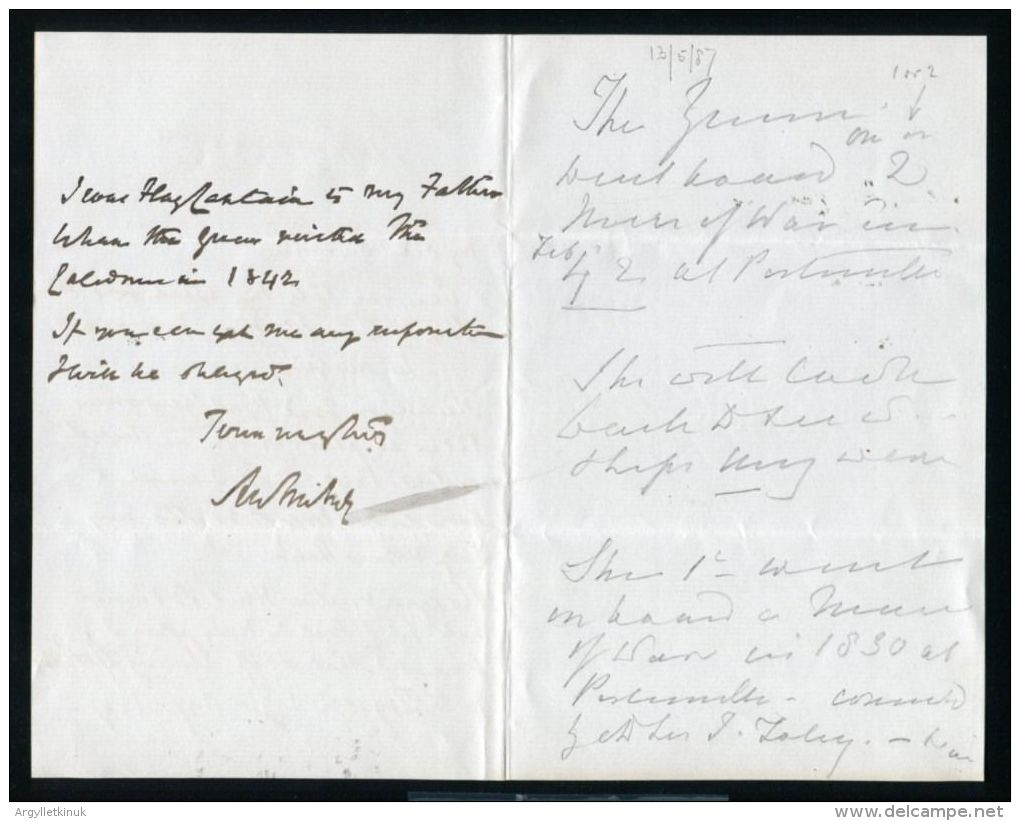 I was Flag Captain to my Father
When the Queen visited the
Caledonia in 1842
If you can get me any information
I will be obliged.
Yours
13/5/87
1 or 2
The Queen
on or
went board 2
Men of War in
Feb
42 at Portsmouth
She will look
back to see w
ships they were
She 1st went
on board a Man
of War in 1830 at
Portsmouth - command
by Adl Sir T. Foley. -
Argylletkinuk
www.delcampe.net